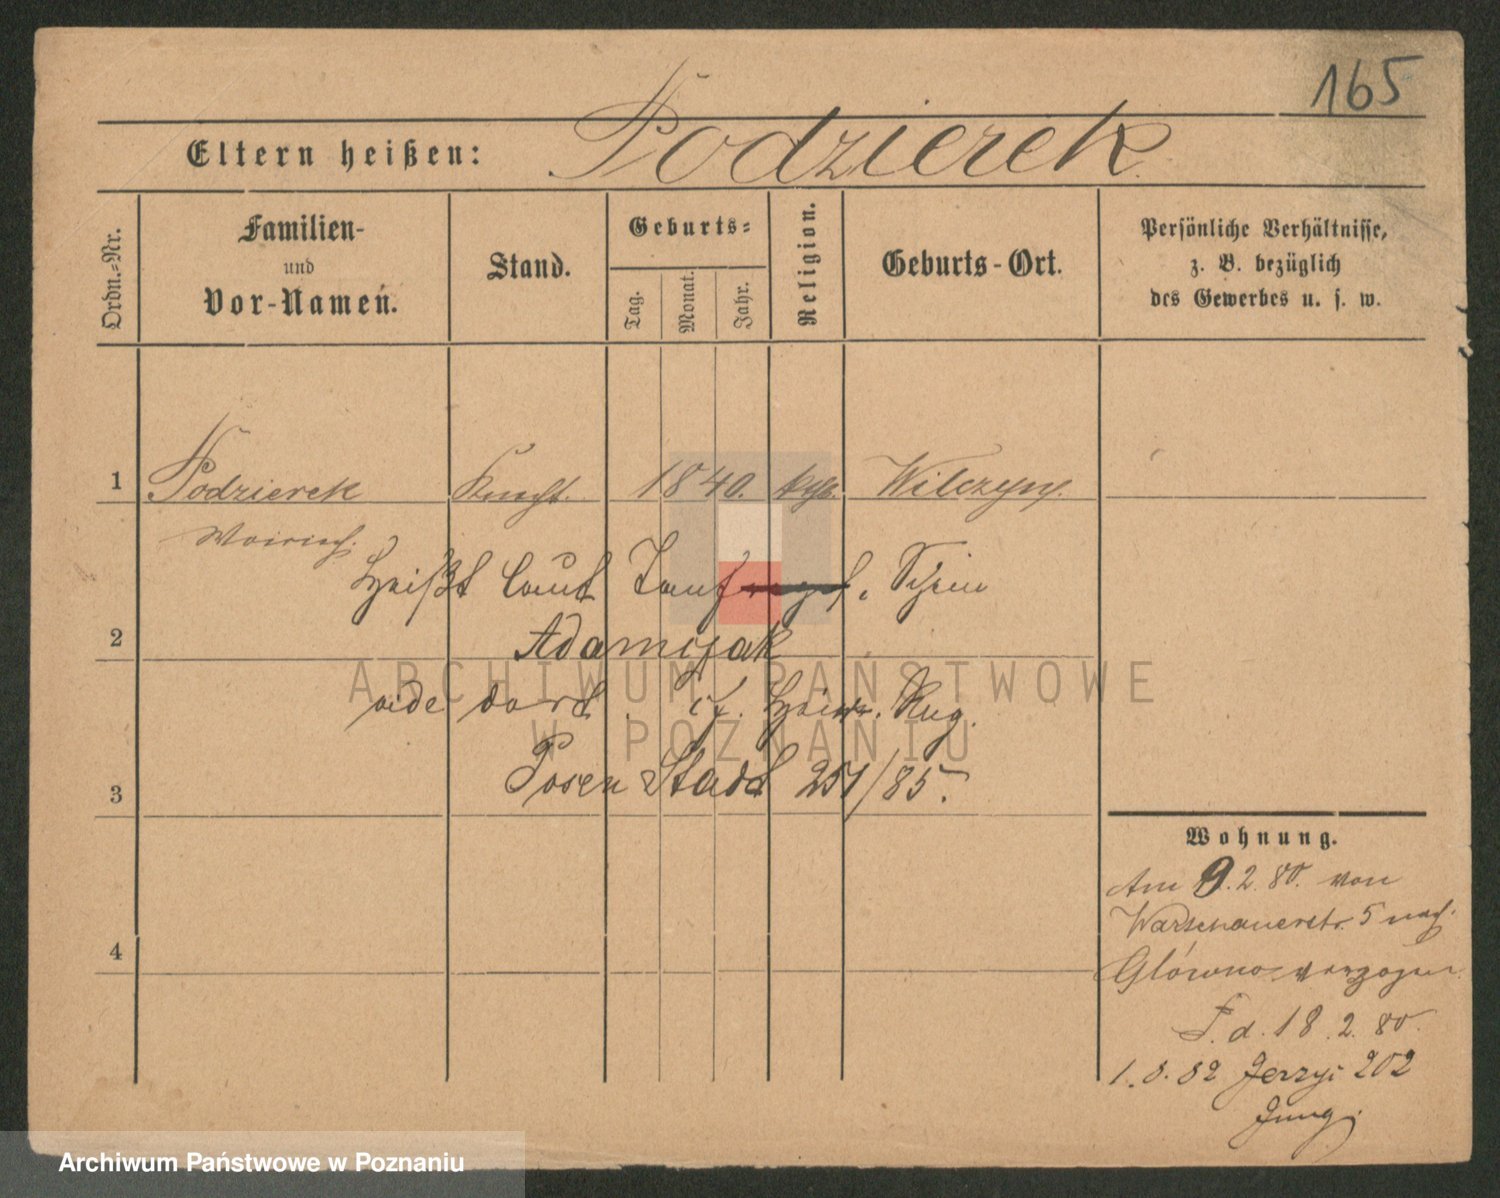 165
Eltern heißen: Podzierek
Ordn.-Nr.
Familien-
und
Vor-Namen.
Stand.
Geburts-
Tag.
Monat.
Jahr.
Religion.
Geburts-Ort.
Persönliche Verhältnisse,
z. B. bezüglich
des Gewerbes u. s. w.
1 Podzierek Knecht. 1840. kath. Wilczyn.
Heißt laut Tauf Schein
2 Adamczak
vide dort
Posen Stadt 251/85.
3
4
Wohnung.
Am 9.2.80. von
Warschauerstr. 5 nach
Glówno verzogen.
F. d. 18.2.80.
1.8.82 Jerzyi 202
Jung.
ARCHIWUM PAŃSTWOWE
W POZNANIU
Archiwum Państwowe w Poznaniu